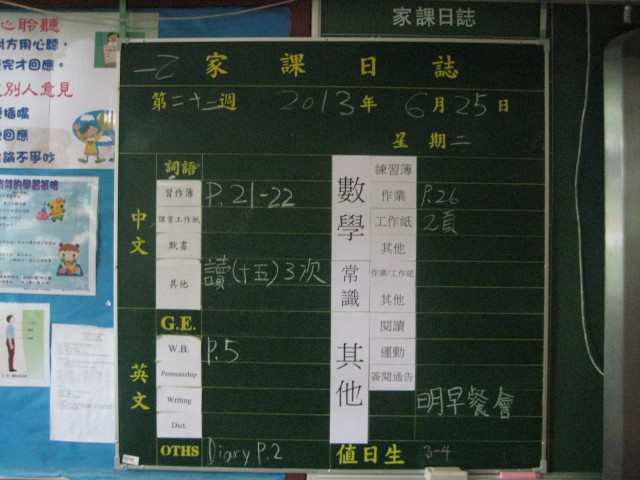 家課日誌
心聆聽
對方用心聽，
完才回應。
別人意見
插嘴
回應
論不爭吵
一乙 家課日誌
第二十二週 2013年 6月25日
星期二
中文
詞語
習作簿 P.21-22
課業工作紙
默書
其他 讀(十五)3次
英文
G.E.
W.B. P.5
Penmanship
Writing
Dict.
OTHS Diary P.2
數學
練習簿
作業 P.26
工作紙 2頁
其他
常識
作業/工作紙
其他
其他
閱讀
運動
簽閱通告
明早餐會
值日生 3-4